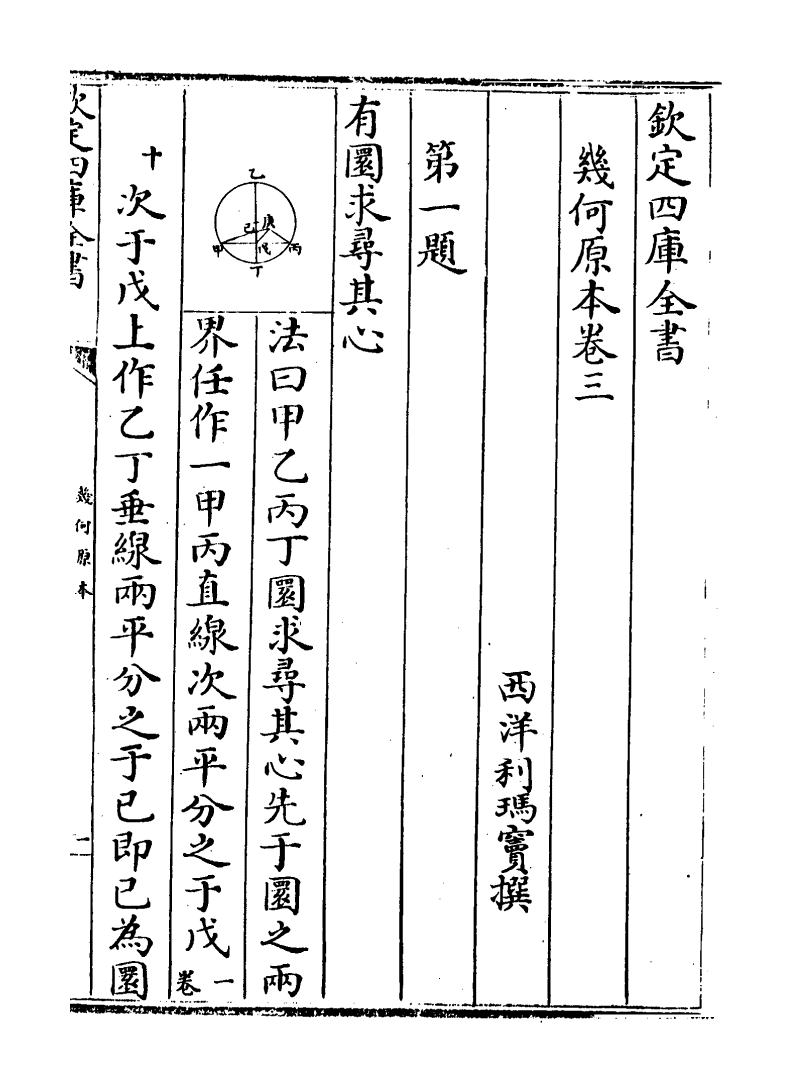 欽定四庫全書
幾何原本卷三
西洋利瑪竇撰
第一題
有圜求尋其心
乙
庚
己
甲
戊
丙
丁
法曰甲乙丙丁圜求尋其心先于圜之兩
界任作一甲丙直線次兩平分之于戊一卷
十次于戊上作乙丁垂線兩平分之于己即己為圜
欽定四庫全書
幾何原本